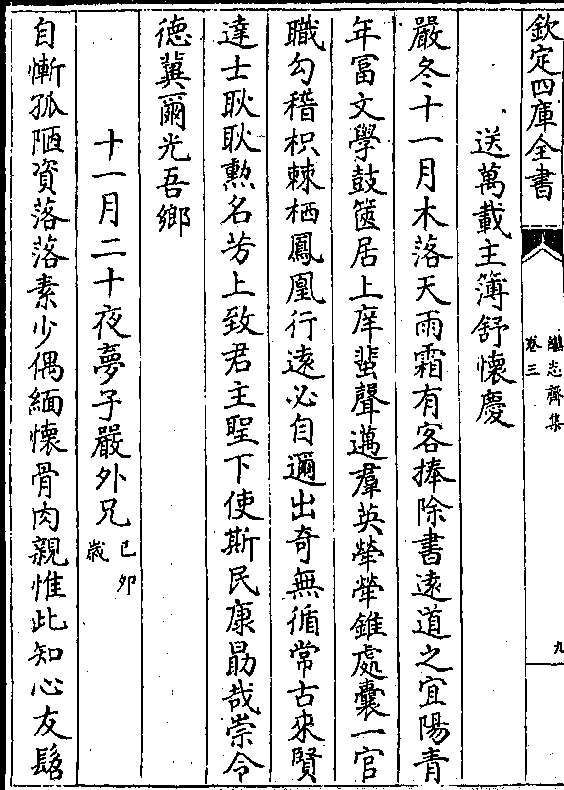 欽定四庫全書
繼志齋集
卷三
九
送萬載主簿舒懷慶
嚴冬十一月木落天雨霜有客捧除書遠道之宜陽青
年富文學鼓篋居上庠蜚聲邁羣英犖犖錐處囊一官
職勾稽枳棘栖鳳凰行遠必自邇出奇無循常古來賢
達士耿耿勲名芳上致君主聖下使斯民康勗哉崇令
德冀爾光吾鄉
十一月二十夜夢子嚴外兄己卯
歲
自慚孤陋資落落素少偶緬懷骨肉親惟此知心友髫